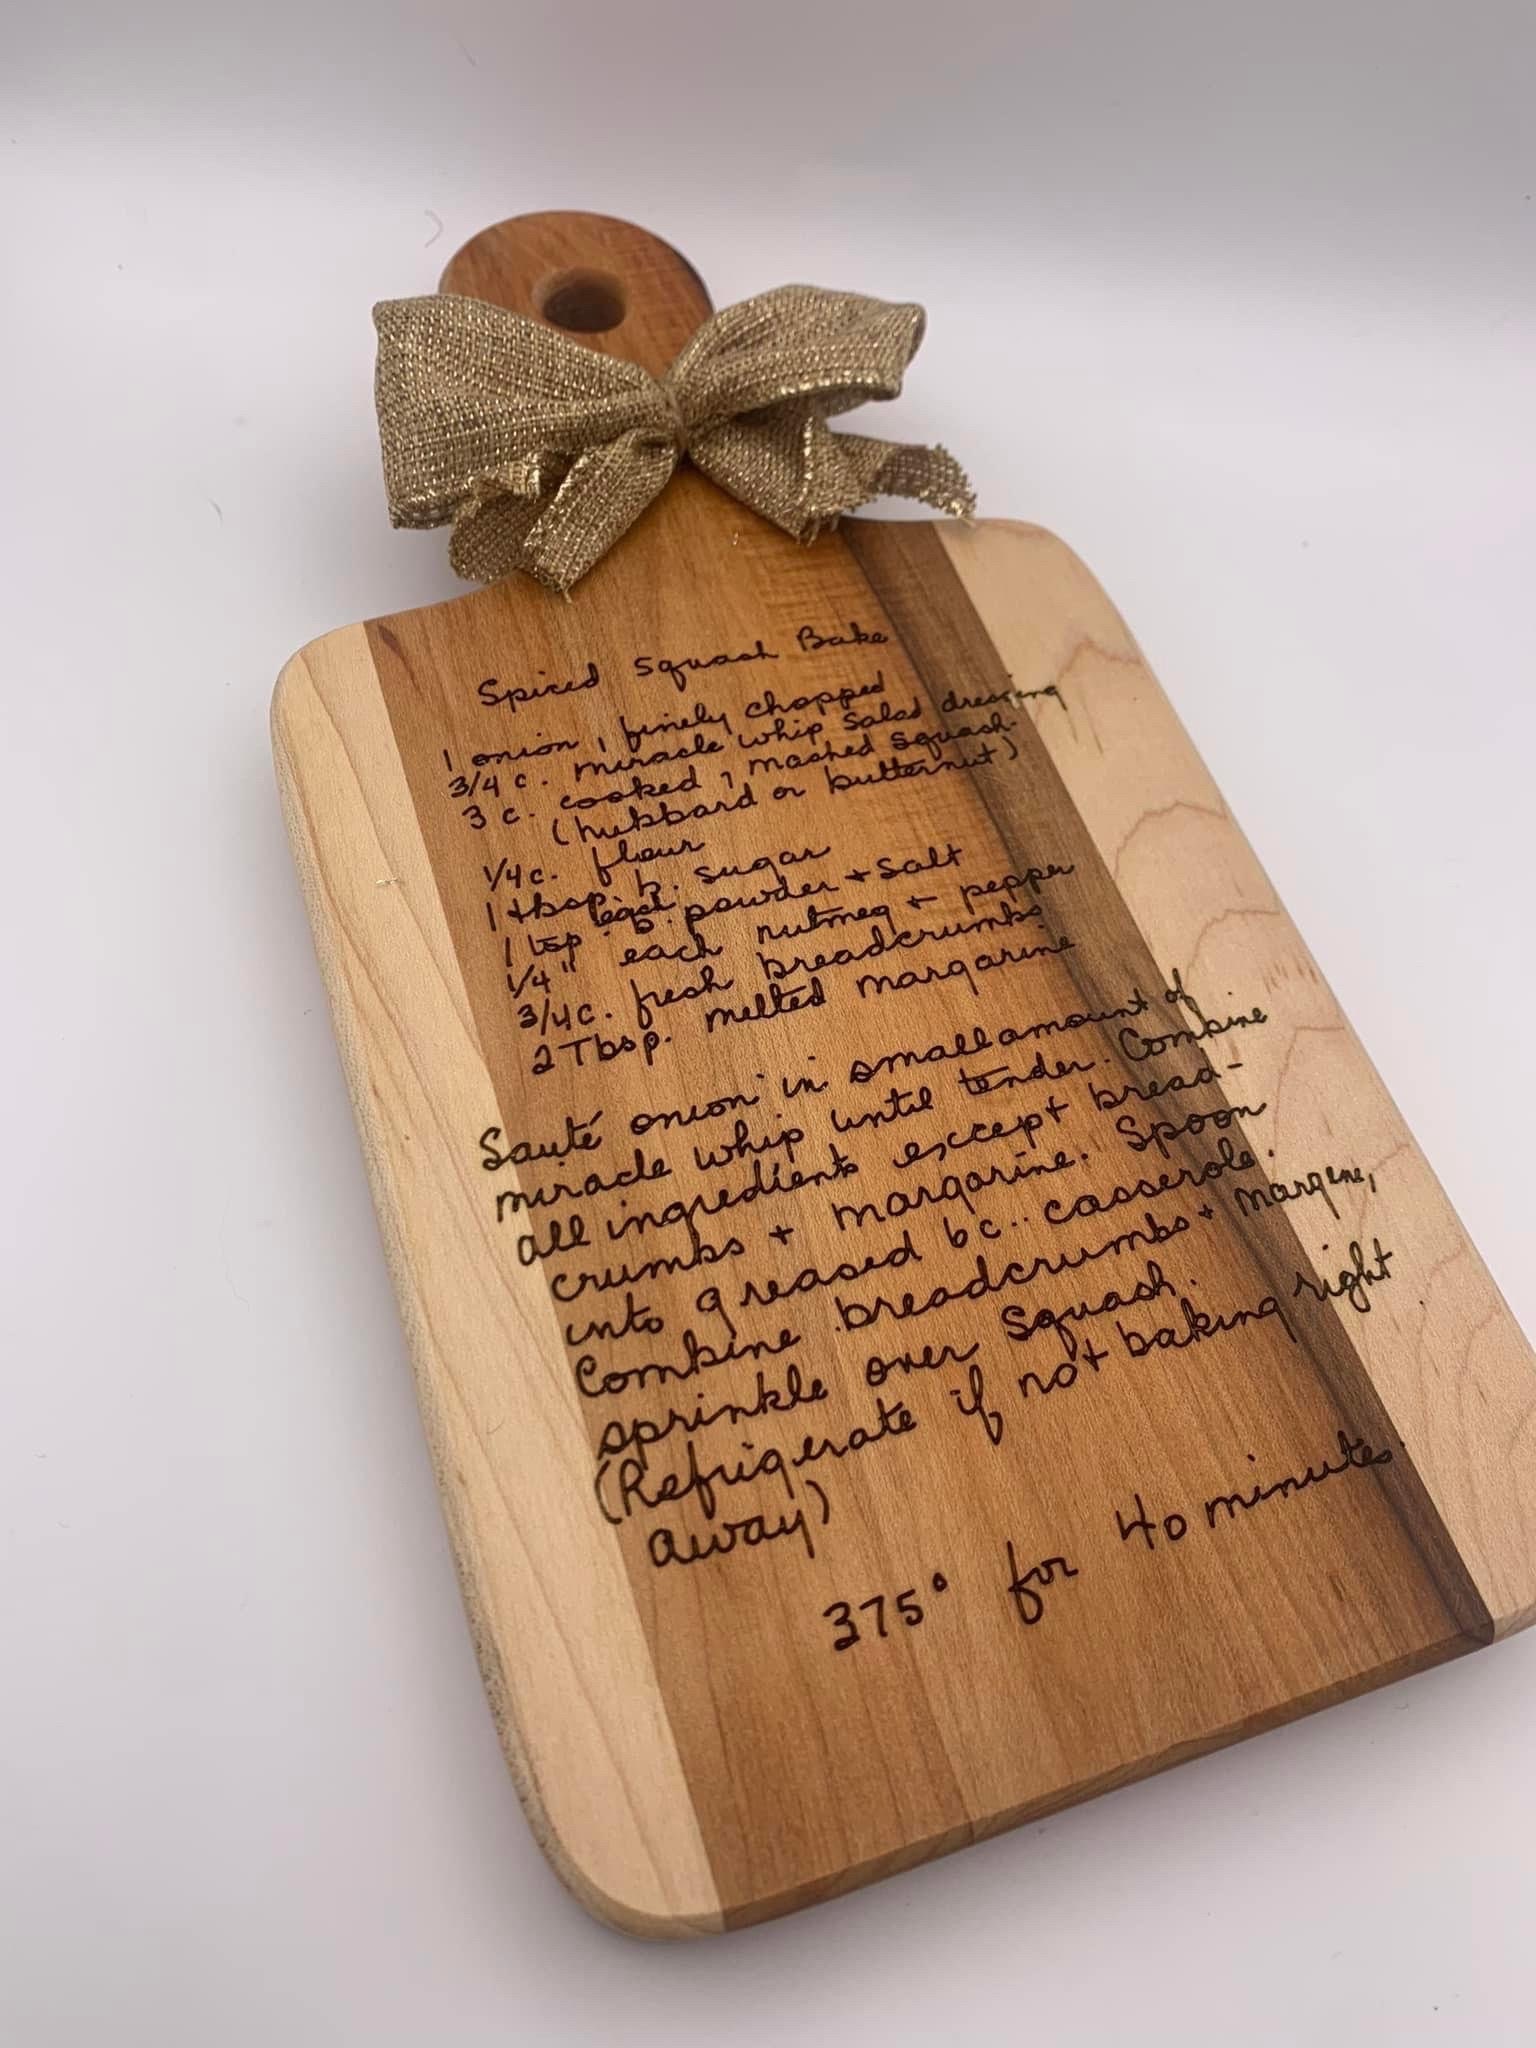 Spiced Squash Bake
1 onion, finely chopped
3/4 c. miracle whip salad dressing
3 c. cooked, mashed squash-
(hubbard or butternut)
1/4 c. flour
1 tbsp. b. sugar
1 tsp. each b. powder + salt
1/4 " each nutmeg + pepper
3/4 c. fresh breadcrumbs
2 Tbsp. melted margarine
Sauté onion in small amount of
miracle whip until tender. Combine
all ingredients except bread-
crumbs + margarine. Spoon
into greased 6 c.. casserole.
Combine breadcrumbs + margine,
sprinkle over squash.
(Refrigerate if not baking right
away)
375° for 40 minutes.